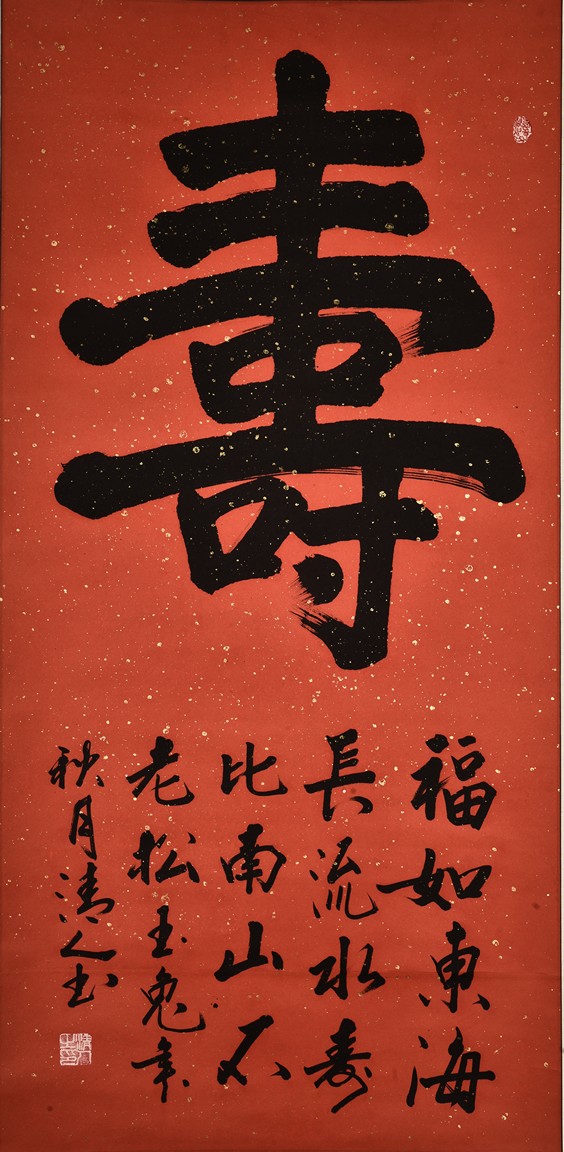 壽
福如東海
長流水壽
比南山不
老松玉兔年
秋月清人书